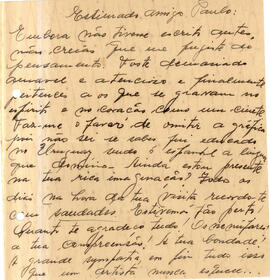 Estimado amigo Paulo:
Embora não tivesse escrito antes,
não creias que me fugiste do
pensamento. Foste demasiado
amavel e atencioso e finalmente
pertences a os que se gravam no
espirito e no coração como um
Faz-me o favor de omitir a
pois não sei se sabes fui educada
no Uruguay onde o espanhol a lingua
que domina. Ainda estou presente
na tua rica imaginação? Todo os
dias na hora da tua visita recordo-te
com saudades. Estivemos tão perto!
Quanto te agradeço tudo! Os
a tua compreensão! A tua bondade!
A grande sympathia, em fim tudo isso
que um artista nunca esquece...